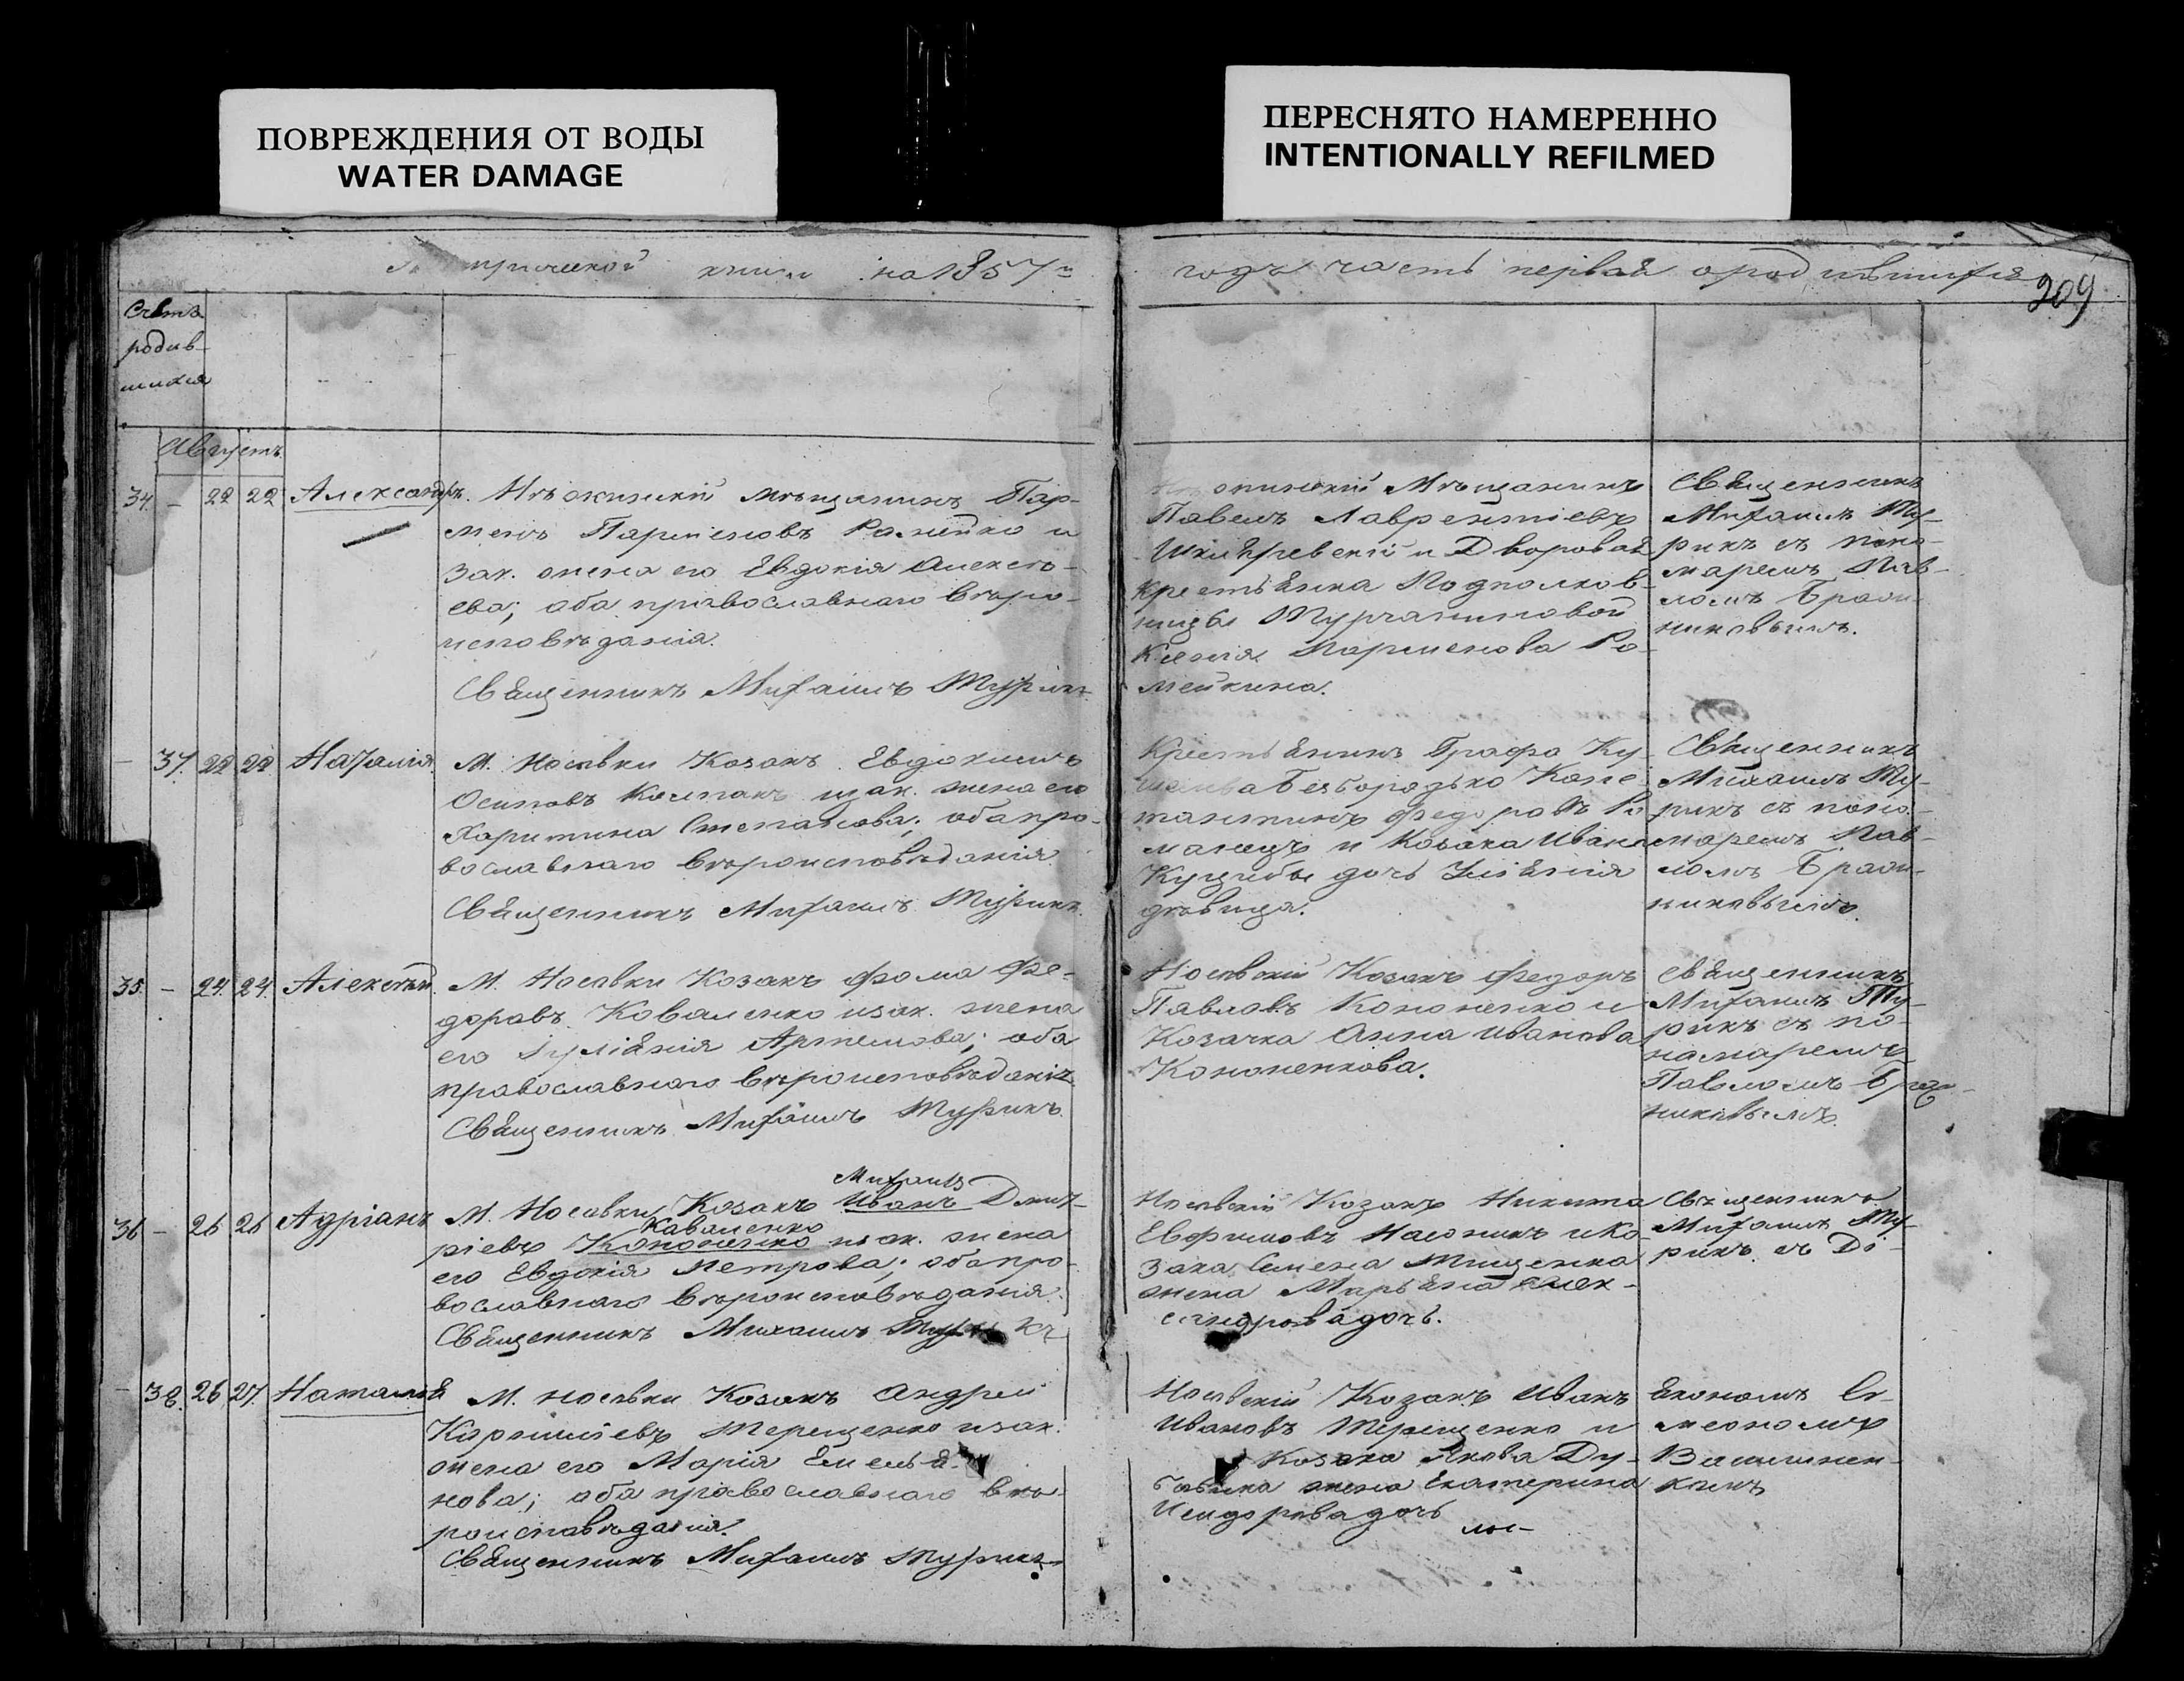 ПОВРЕЖДЕНИЯ ОТ ВОДЫ
WATER DAMAGE
ПЕРЕСНЯТО НАМЕРЕННО
INTENTIONALLY REFILMED
книги на 1857й
годъ часть первая о родившихся
209
Счетъ
родив-
шихся
Августъ
34. - 22 22 Александръ.
Нѣжинскій мѣщанинъ Пар-
менъ Парменовъ и
зак. жена его Евдокія Алексѣ-
ева; оба православнаго вѣро-
исповѣданія.
Священникъ Михаилъ Турикъ
мѣщанинъ
Павелъ Лаврентіевъ
и Дворовая
крестьянка Подполков-
ницы Турчаниновой
Парменова Ро-
мейкина.
Священникъ
Михаилъ Ту-
рикъ съ поно-
маремъ Пав-
ломъ Браж-
никовымъ.
- 37. 22 22 Наталія.
М. Носовки Козакъ Евдокимъ
Осиповъ Колпакъ и зак. жена его
Харитина Степанова; оба пра-
вославнаго вѣроисповѣданія.
Священникъ Михаилъ Турикъ.
Крестьянинъ Графа Ку-
шелева Безбородько Конс-
тантинъ Федоровъ Ро-
манецъ и Козака Ивана
дочь Ульянія
дѣвица.
Священникъ
Михаилъ Ту-
рикъ съ поно-
маремъ Пав-
ломъ Браж-
никовымъ.
35. - 24. 24. Алексѣй.
М. Носовки Козакъ Фома Фе-
доровъ Коваленко и зак. жена
его Іуліанія Артемова; оба
православнаго вѣроисповѣданія
Священникъ Михаилъ Турикъ.
Носовскій Козакъ Федоръ
Павловъ Кононенко и
Козачка Анна Иванова
Кононенкова.
Священникъ
Михаилъ Ту-
рикъ съ по-
номаремъ
Павломъ Браж-
никовымъ.
Михаилъ
36 - 26 26 Адріанъ
М. Носовки Козакъ Иванъ Дмит-
Коваленко
ріевъ Кононенко и зак. жена
его Евдокія Петрова; оба пра-
вославнаго вѣроисповѣданія.
Священникъ Михаилъ Турикъ
Носовскій Козакъ Никита
Евфимовъ и Ко-
зака Семена Тищенка
жена Марьяна Алек-
сандрова дочь.
Священникъ
Михаилъ Ту-
рикъ съ Ді-
- 38. 26 27. Наталія
М. Носовки Козакъ Андрей
Корниліевъ Терещенко и зак.
жена его Марія Емелья-
нова; оба православнаго вѣ-
роисповѣданія.
Священникъ Михаилъ Турикъ
Носовскій Козакъ Иванъ
Ивановъ Терещенко и
Козака Якова Ду-
жена Екатерина
дочь